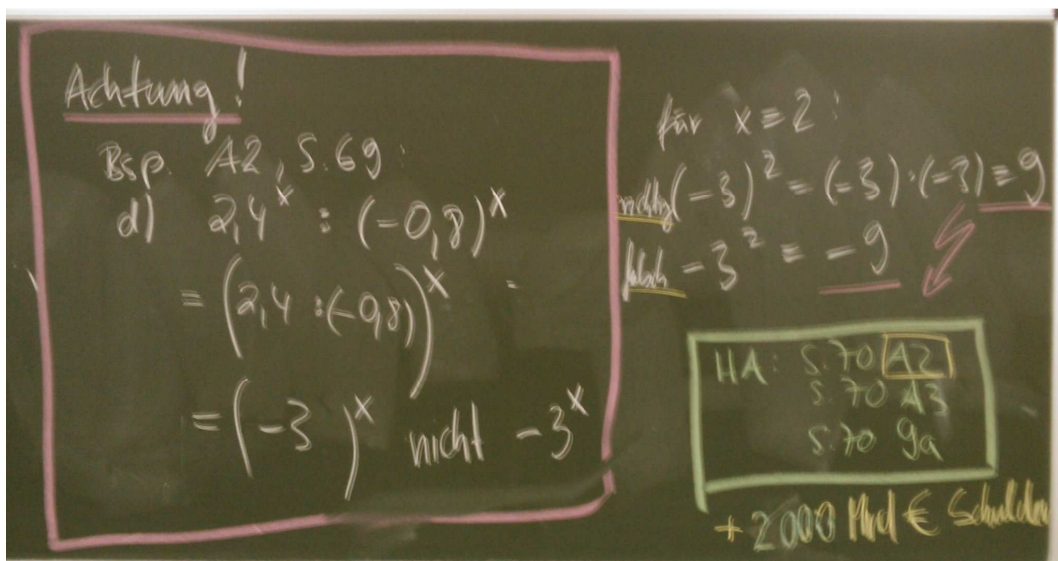 Achtung!
Bsp. A2, S.69:
d) 2,4^x : (-0,8)^x
= (2,4 : (-0,8))^x
= (-3)^x nicht -3^x
für x = 2:
richtig (-3)^2 = (-3)·(-3) = 9
falsch -3^2 = -9
HA: S.70 A2
S.70 A3
S.70 9a
+ 2000 Mrd € Schulden